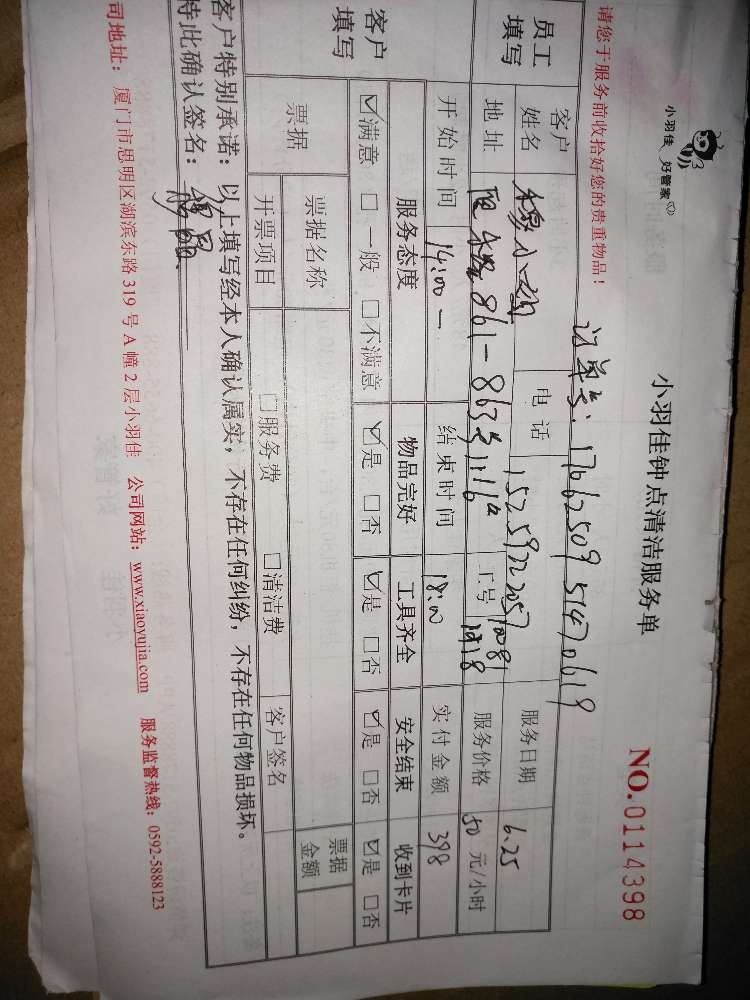 小羽佳 好管家
小羽佳钟点清洁服务单
NO.0114398
请您于服务前收拾好您的贵重物品！
订单号：17662509 51470619
员工填写
客户姓名 小姐 电话 15259222057 服务日期 6.25
地址 861-863号1116 工号 10081 1918 服务价格 50 元/小时
开始时间 14:00 — 结束时间 18:00 实付金额 398
客户填写
服务态度 物品完好 工具齐全 安全结束 收到卡片
☑满意 □一般 □不满意 ☑是 □否 ☑是 □否 ☑是 □否 ☑是 □否
票据 票据名称 票据金额
开票项目 □服务费 □清洁费 客户签名
客户特别承诺：以上填写经本人确认属实，不存在任何纠纷，不存在任何物品损坏。
特此确认签名：
司地址：厦门市思明区湖滨东路 319 号 A 幢 2 层小羽佳 公司网站：www.xiaoyujia.com 服务监督热线：0592-5888123